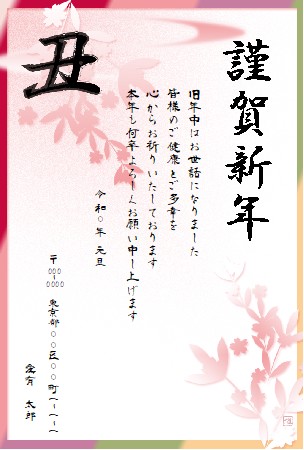 謹賀新年
丑
旧年中はお世話になりました
皆様のご健康とご多幸を
心からお祈りいたしております
本年も何卒よろしくお願い申し上げます
令和○年 元旦
〒○○○-○○○○
東京都○○区○○町1-1-1
愛有 太郎